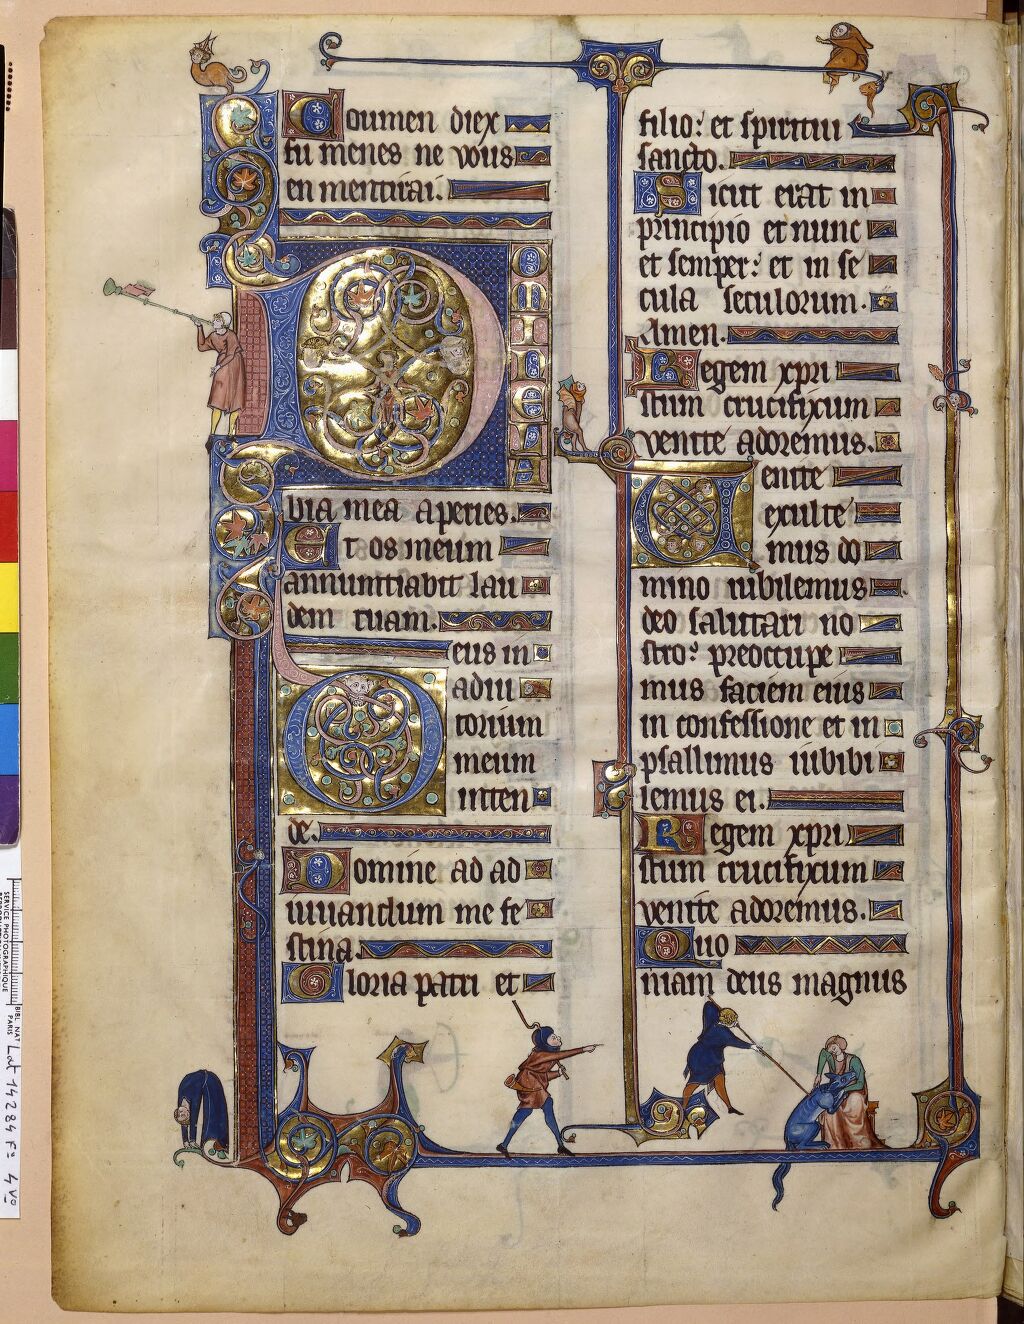 Coumen diex
tu menes ne vous
en mentirai.
DOMINE LA
bia mea aperies.
Et os meum
annuntiabit lau
dem tuam.
Deus in
adiu
torium
meum
inten
de.
Domine ad ad
iuuandum me fe
stina.
Gloria patri et
filio: et spiritui
sancto.
Sicut erat in
principio et nunc
et semper: et in se
cula seculorum.
Amen.
Regem xpri
stum crucifixum
venite adoremus.
Uenite
exulte
mus do
mino iubilemus
deo salutari no
stro: preoccupe
mus faciem eius
in confessione et in
psallimus iubibi
lemus ei.
Regem xpri
stum crucifixum
venite adoremus.
Quo
niam deus magnus
SERVICE PHOTOGRAPHIQUE
BIBL NAT
PARIS
Lat 14284 Fº 4 vº